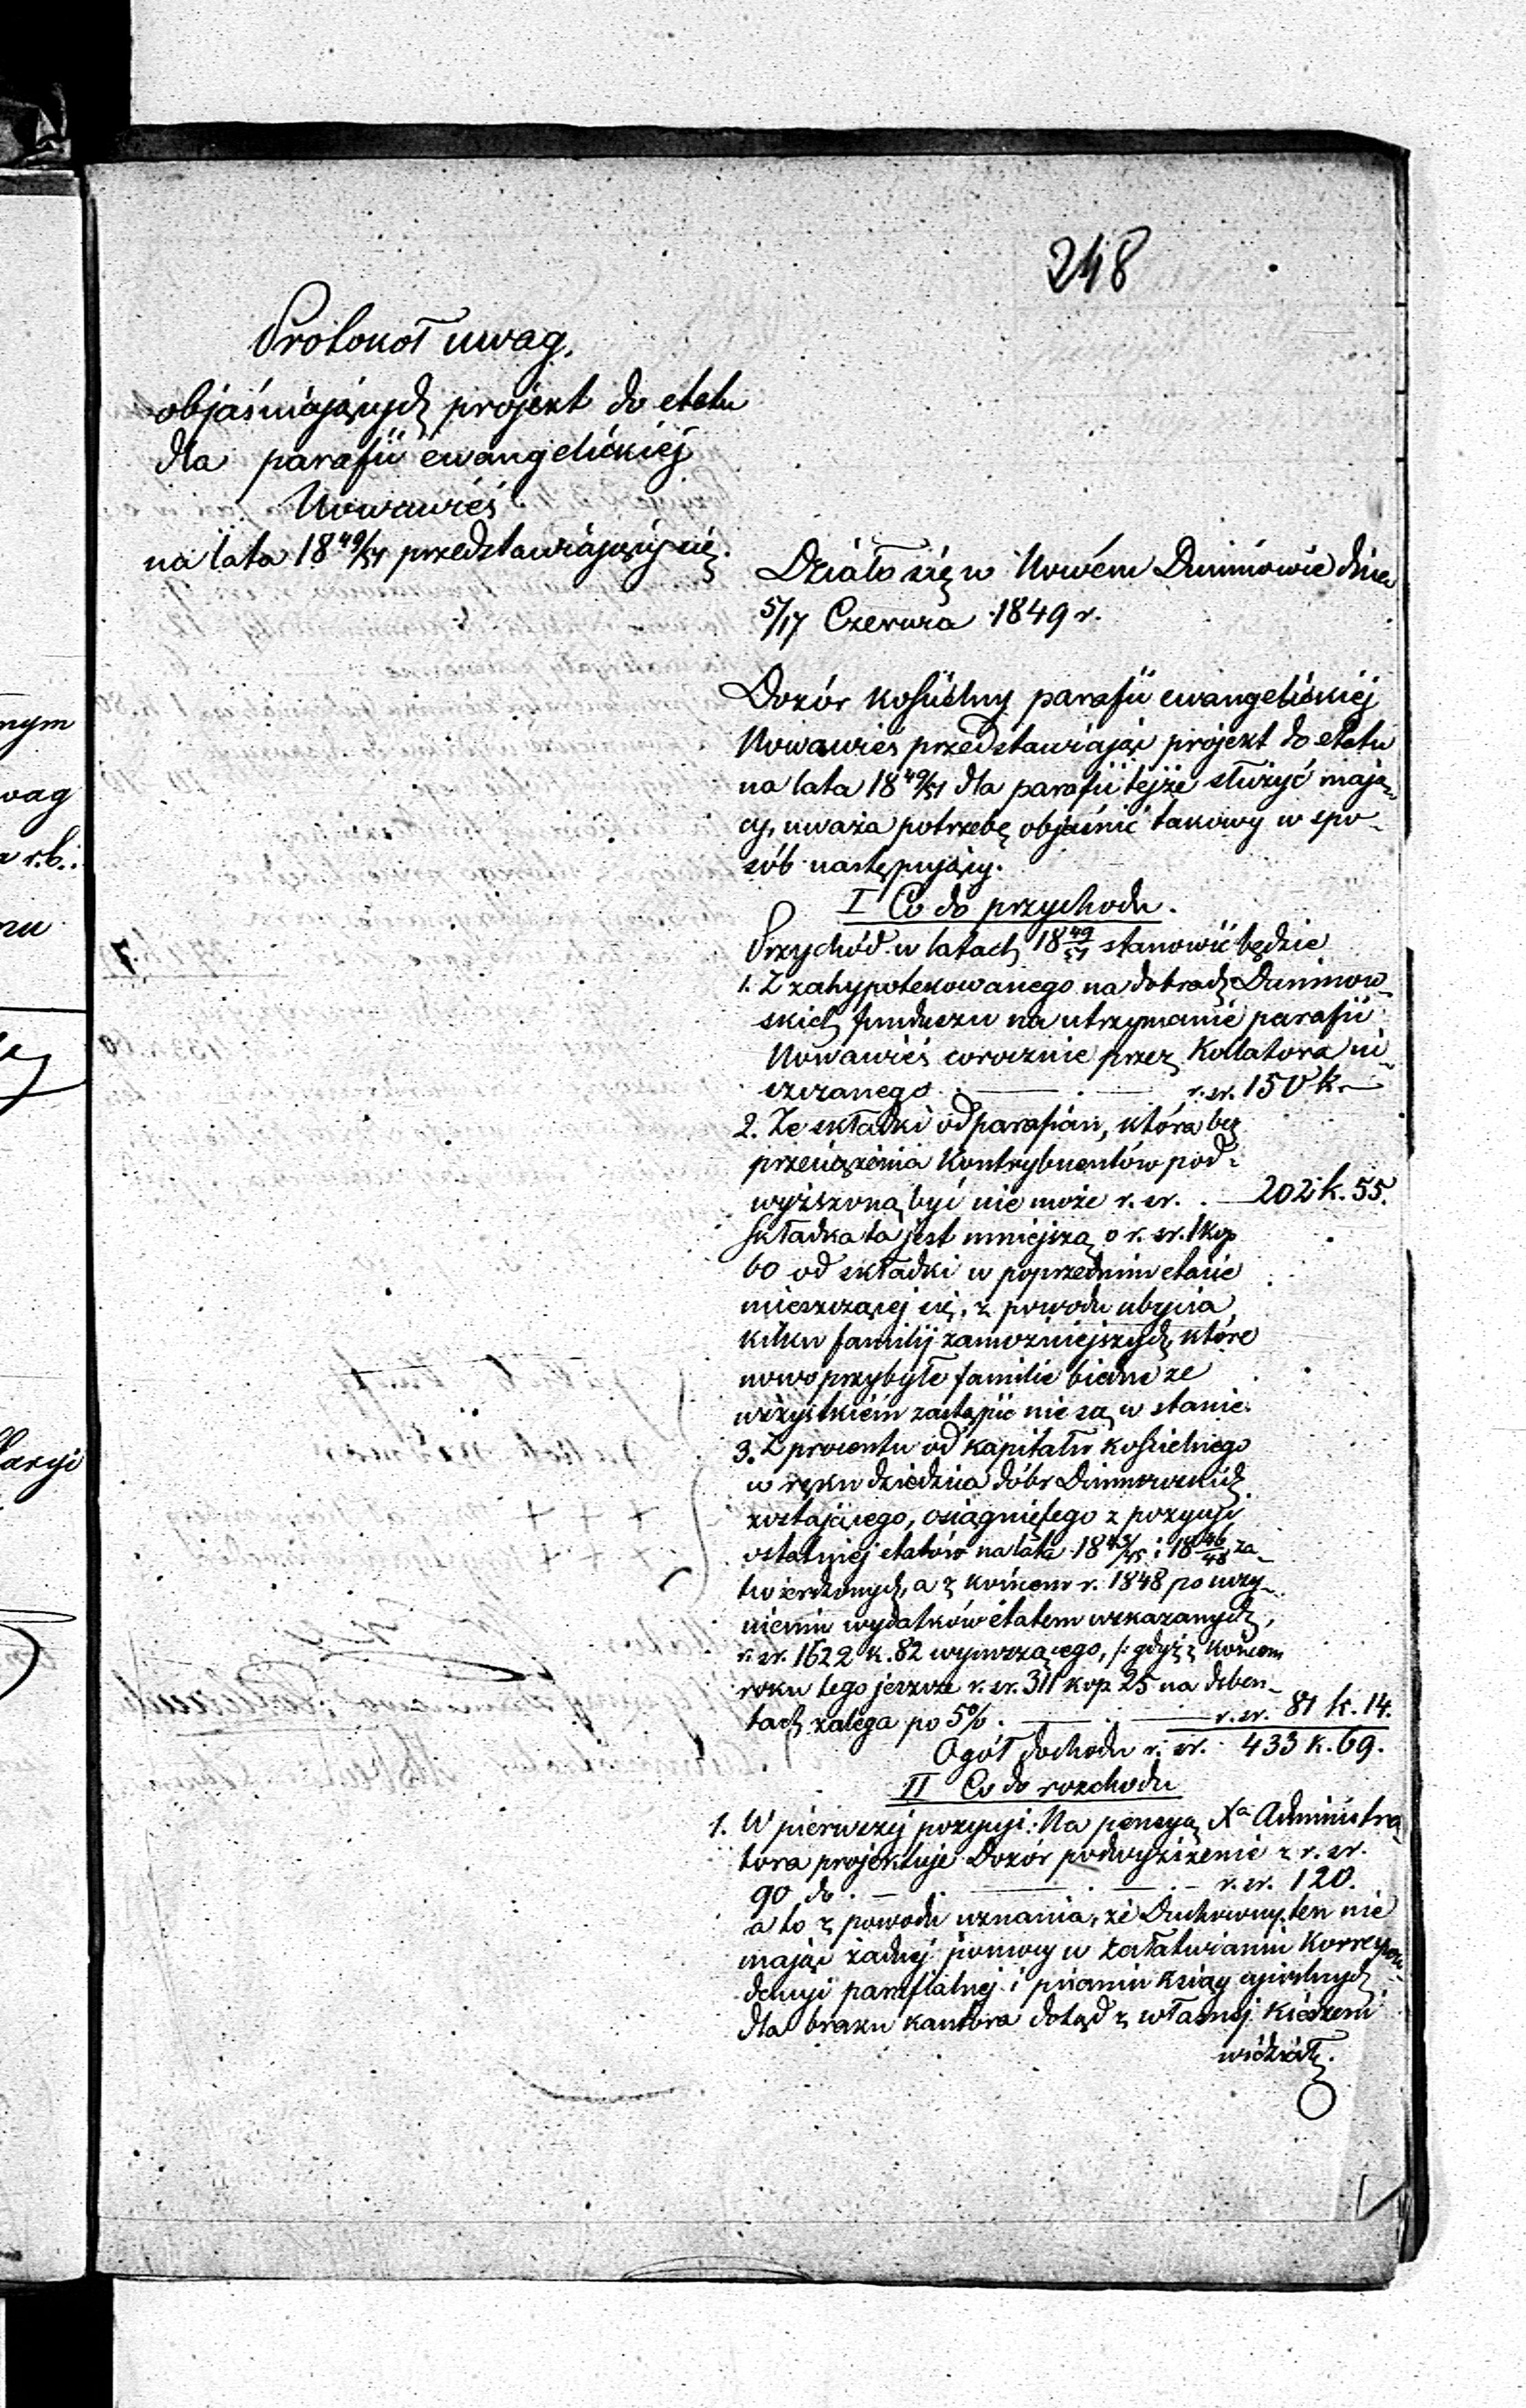 248
Protokoł uwag,
objaśniających projekt do etatu
dla parafii ewangelickiéj
Nowawieś
na lata 18 49/51 przedstawiający się.
Działo się w Nowém Duninowie dnia
5/17 Czerwca 1849 r.
Dozór kościelny parafii ewangelickiéj
Nowawieś przedstawiając projekt do etatu
na lata 18 49/51 dla parafii tejże służyć mają-
cy, uważa potrzebę objaśnić takowy w spo-
sób następujący.
I Co do przychodu.
Przychód w latach 18 49/51 stanowić będzie
1. Z zahypotekowanego na dobrach Duninow-
skich funduszu na utrzymanie parafii
Nowawieś corocznie przez Kollatora ui-
szczanego r. sr. 150 k. —
2. Ze składki od parafian, która bez
przeciążenia Kontrybuentów pod-
wyższoną być nie może r. sr. 202 k. 55.
Składka ta jest mniejsza o r. sr. 1 kop
60 od składki w poprzednim etacie
mieszczącej się, z powodu ubycia
kilku familij zamożniejszych, które
nowo przybyłe familie biedne ze
wszystkiém zastąpić nie są w stanie.
3. Z procentu od kapitału kościelnego
w ręku dziedzica dóbr Duninowskich
zostającego, osiągniętego z pozycyi
ostatniej etatów na lata 18 43/45 i 18 46/48 za-
twierdzonych, a z końcem r. 1848 po uczy-
nieniu wydatków etatem wskazanych,
r. sr. 1622 k. 82 wynoszącego, /: gdyż z końcem
roku tego jeszcze r. sr. 311 kop 25 na deben-
tach zalega po 5% r. sr. 81 k. 14.
Ogół dochodu r. sr. 433 k. 69.
II Co do rozchodu
1. W pierwszej pozycyi: Na pensyą Xa Administra-
tora projektuje Dozór podwyższenie z r. sr.
90 do r. sr. 120.
a to z powodu uznania, że Duchowny ten nie
mając żadnej pomocy w załatwianiu Korrespon-
dencyi parafialnej i pisaniu ksiąg cywilnych
dla braku kantora dotąd z własnej kieszeni